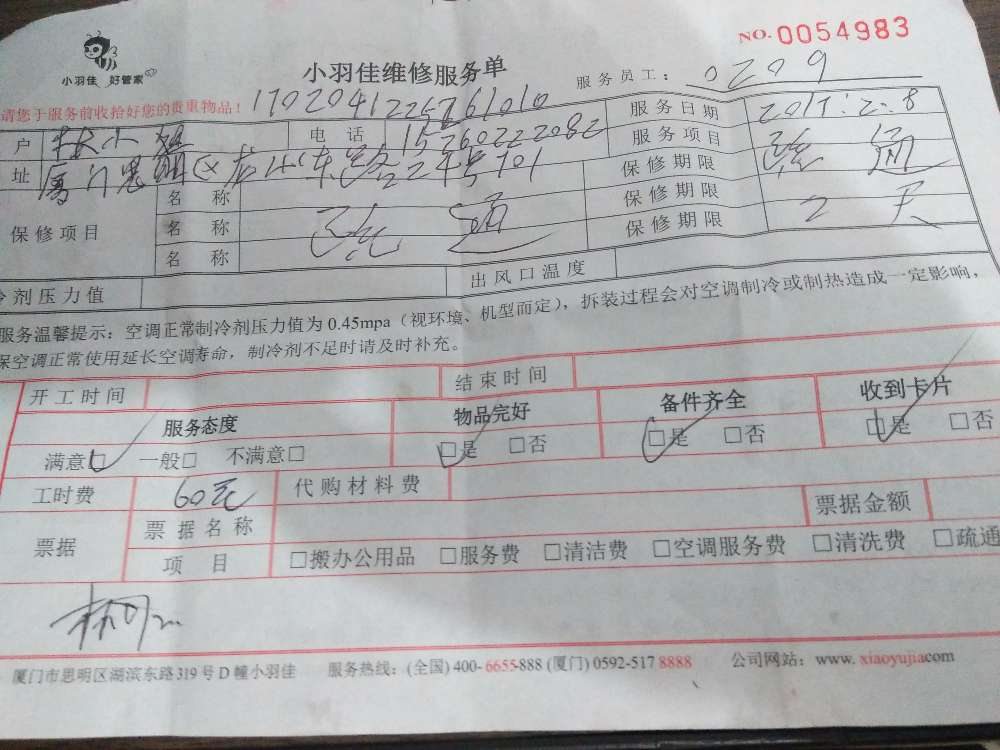 小羽佳 好管家
小羽佳维修服务单
NO. 0054983
服务员工: 0209
请您于服务前收拾好您的贵重物品!
户 林小姐 电话 15260222082 服务日期 2017.2.8
址 厦门思明区龙山东路24号701 服务项目 疏通
保修项目 名称 保修期限
名称 疏通 保修期限 2天
名称 保修期限
冷剂压力值 出风口温度
服务温馨提示: 空调正常制冷剂压力值为0.45mpa(视环境、机型而定), 拆装过程会对空调制冷或制热造成一定影响,
保空调正常使用延长空调寿命, 制冷剂不足时请及时补充。
开工时间 结束时间
服务态度 物品完好 备件齐全 收到卡片
满意□ 一般□ 不满意□ □是 □否 □是 □否 □是 □否
工时费 60元 代购材料费
票据 票据名称 票据金额
项目 □搬办公用品 □服务费 □清洁费 □空调服务费 □清洗费 □疏通
厦门市思明区湖滨东路319号D幢小羽佳 服务热线: (全国) 400-6655-888 (厦门) 0592-517 8888 公司网站: www.xiaoyujia.com